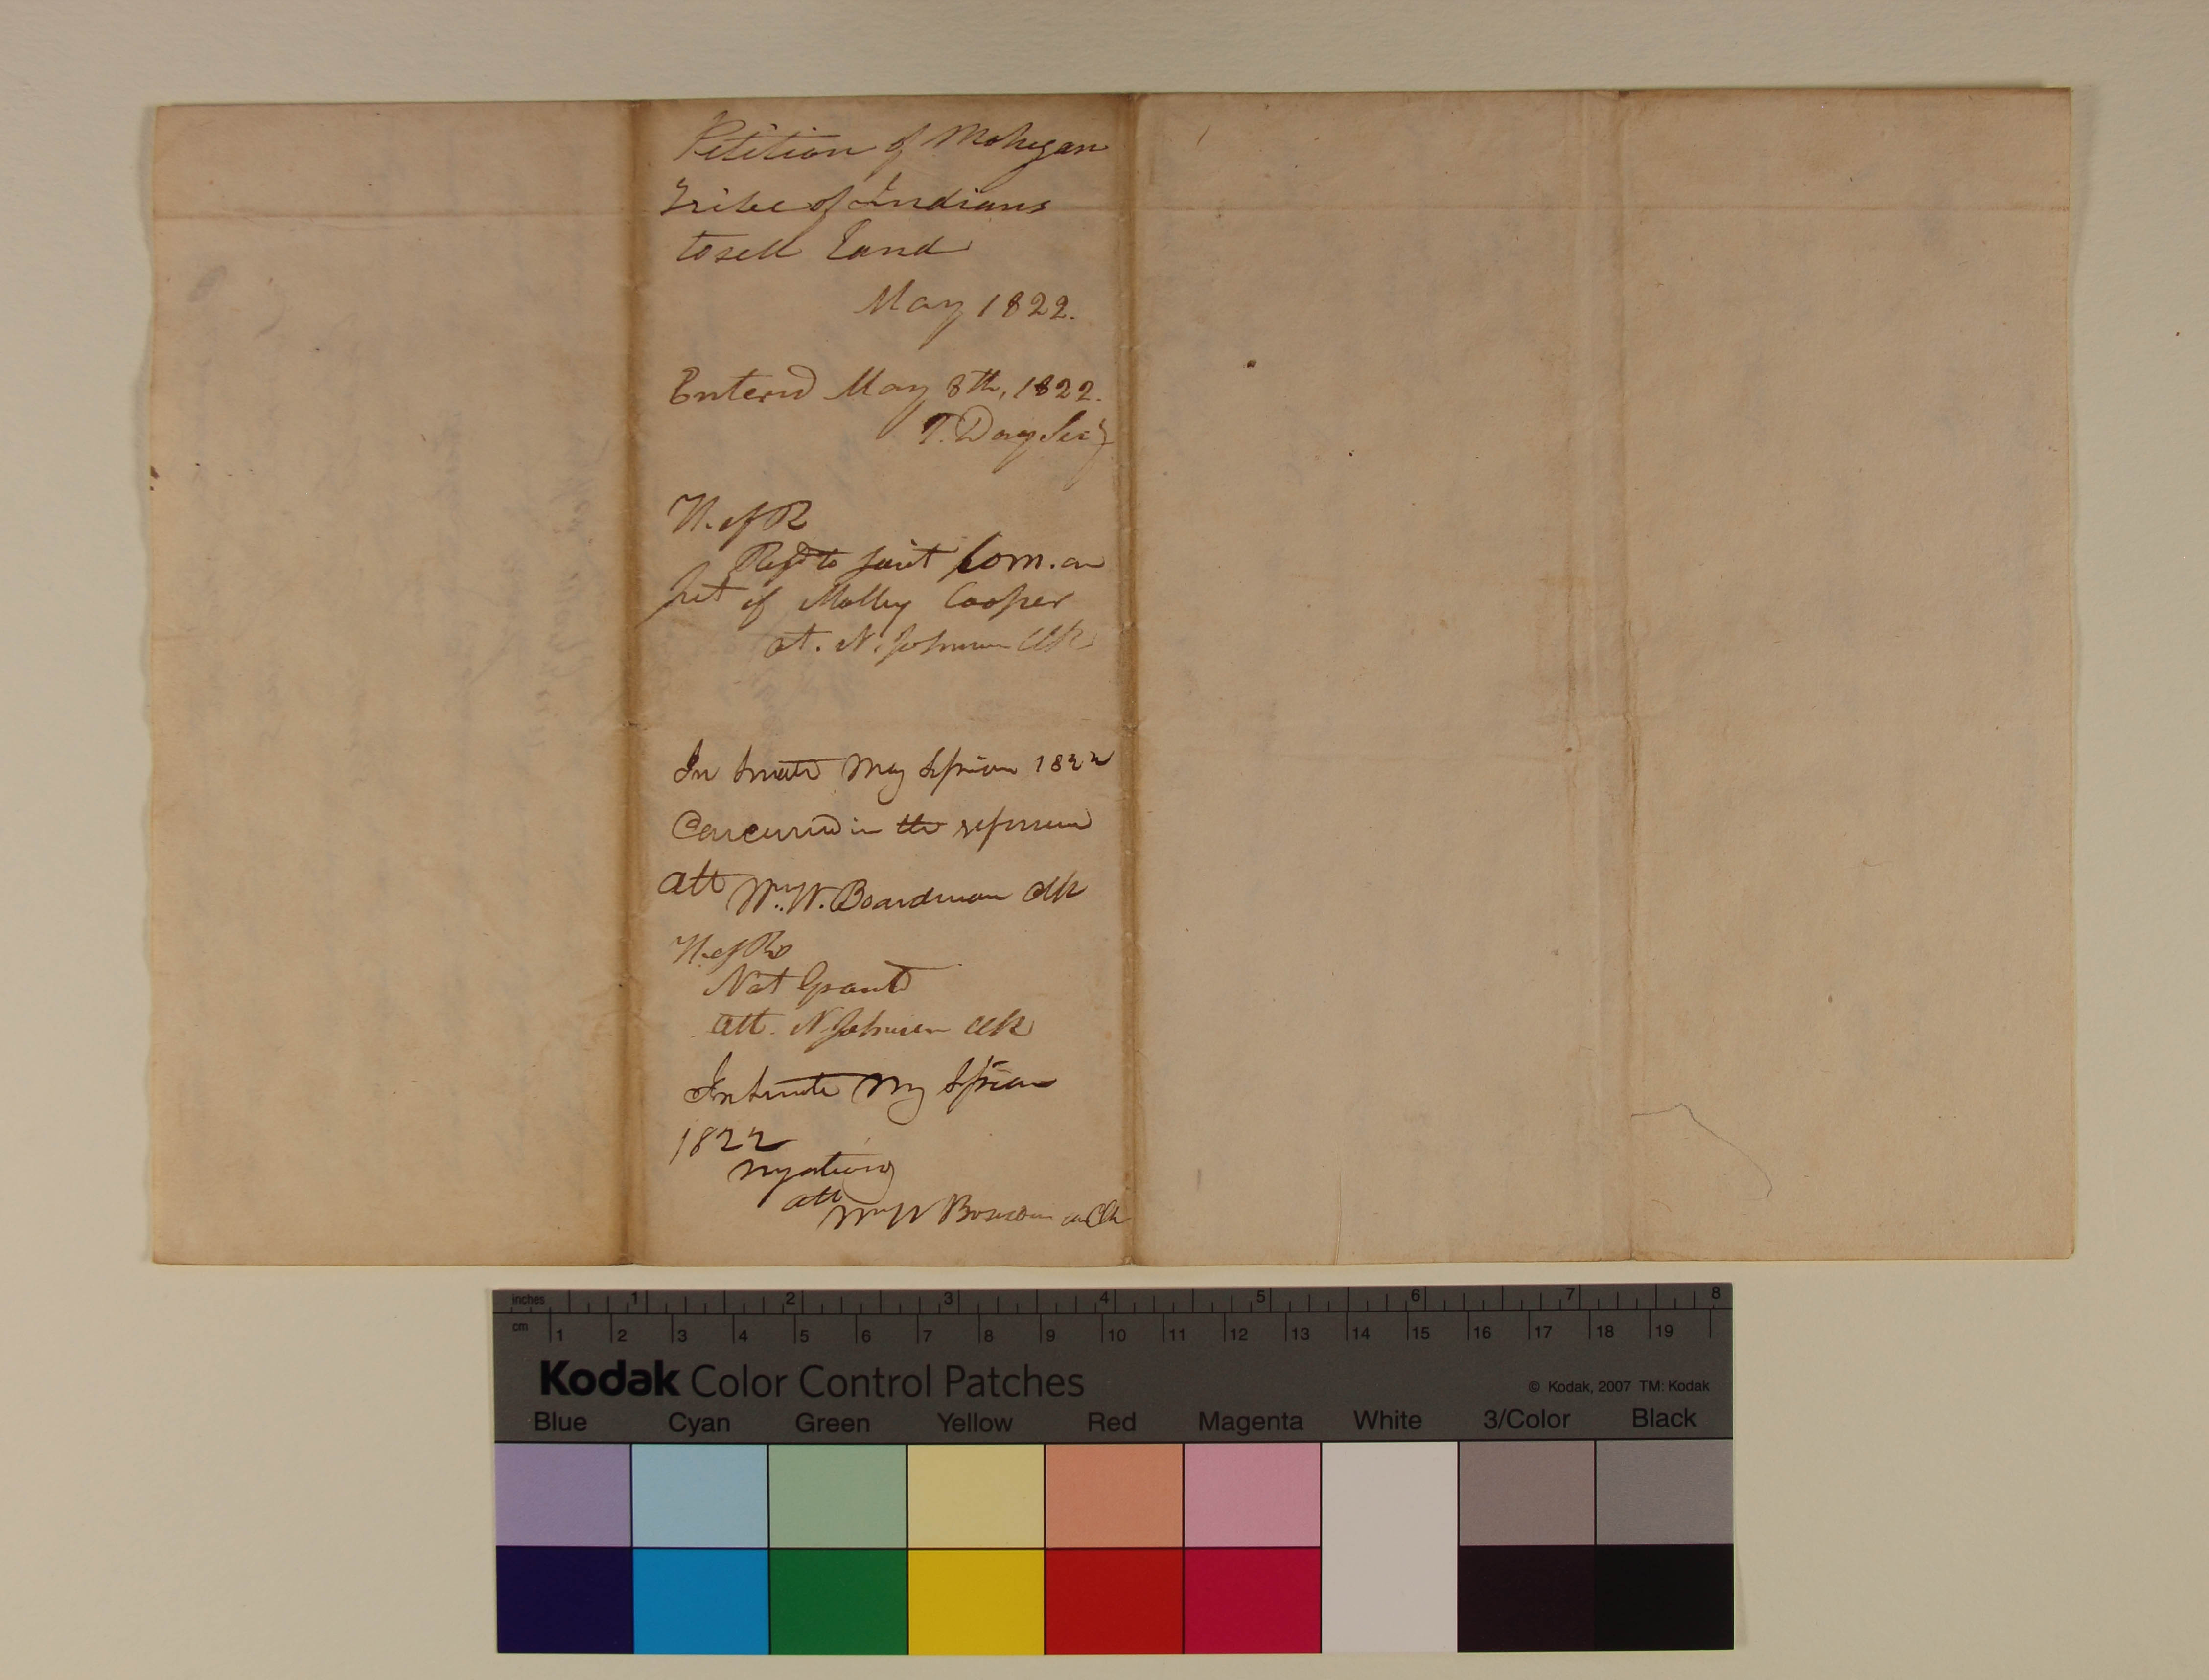 Petition of Mohegan
Tribe of Indians
to sell Land
May 1822.
Enterd May 8th, 1822.
T. Day Secy
H. of R
Refd to joint Com. on
Pet of Molley Cooper
at. N. Johnson Clk
In Senate May Session 1822
Concurred in the reference
att Wm. W. Boardman Clk
H. of Rs
Not Grantd
att. N Johnson Clk
In Senate May Session
1822
Negatived
att
Wm W Boardman Clk
inches 1 2 3 4 5 6 7 8
cm 1 2 3 4 5 6 7 8 9 10 11 12 13 14 15 16 17 18 19
Kodak Color Control Patches
© Kodak, 2007 TM: Kodak
Blue Cyan Green Yellow Red Magenta White 3/Color Black